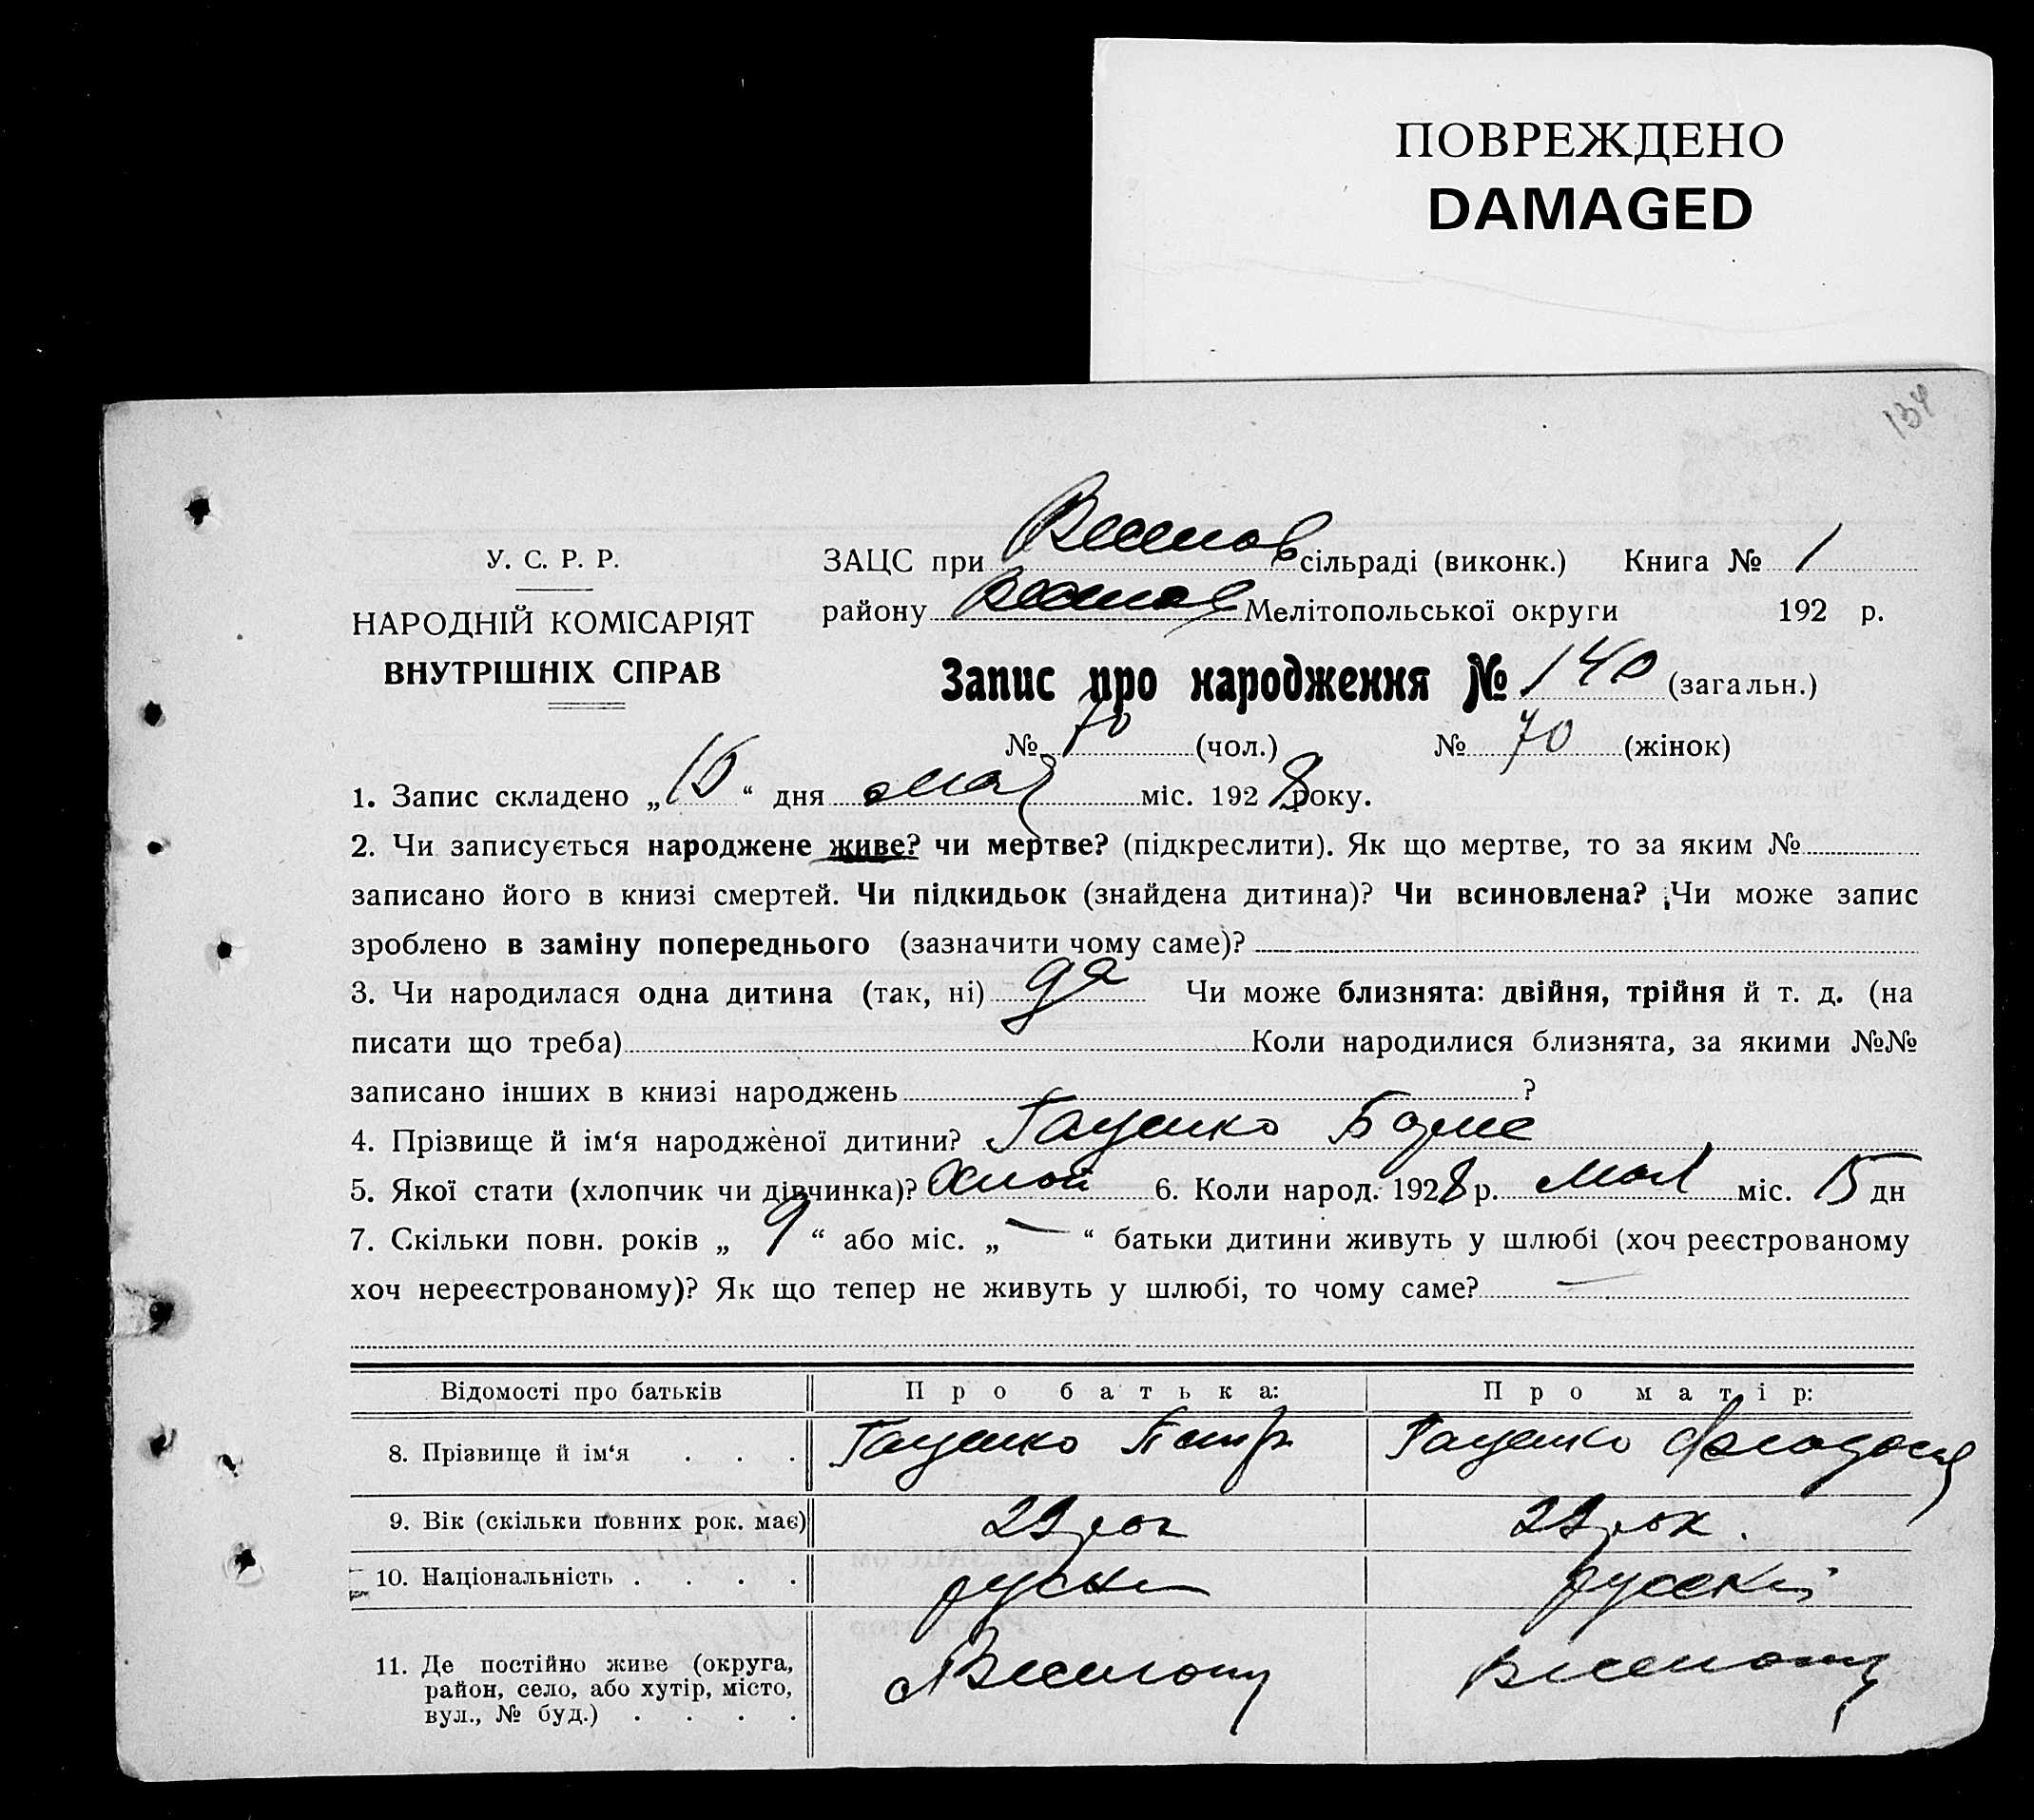 ПОВРЕЖДЕНО
DAMAGED
134
У. С. Р. Р.
НАРОДНІЙ КОМІСАРІЯТ
ВНУТРІШНІХ СПРАВ
ЗАЦС при Веселов сільраді (виконк.) Книга № 1
району Веселов Мелітопольської округи 192 р.
Запис про народження № 140 (загальн.)
№ 70 (чол.) № 70 (жінок)
1. Запис складено „15“ дня мая міс. 1928 року.
2. Чи записується народжене живе? чи мертве? (підкреслити). Як що мертве, то за яким №
записано його в книзі смертей. Чи підкидьок (знайдена дитина)? Чи всиновлена? Чи може запис
зроблено в заміну попереднього (зазначити чому саме)?
3. Чи народилася одна дитина (так, ні) да Чи може близнята: двійня, трійня й т. д. (на
писати що треба) Коли народилися близнята, за якими №№
записано інших в книзі народжень ?
4. Прізвище й ім‘я народженої дитини? Гаценко
5. Якої стати (хлопчик чи дівчинка)? 6. Коли народ. 1928 р. мая міс. 15 дн
7. Скільки повн. років „9“ або міс. „—“ батьки дитини живуть у шлюбі (хоч реєстрованому
хоч нереєстрованому)? Як що тепер не живуть у шлюбі, то чому саме? —
Відомості про батьків Про батька: Про матір:
8. Прізвище й ім‘я . . . Гаценко Петр Гаценко
9. Вік (скільки повних рок. має) 29 рок 29 рок.
10. Національність . . . . руски русский
11. Де постійно живе (округа,
район, село, або хутір, місто,
вул., № буд.) . . . .